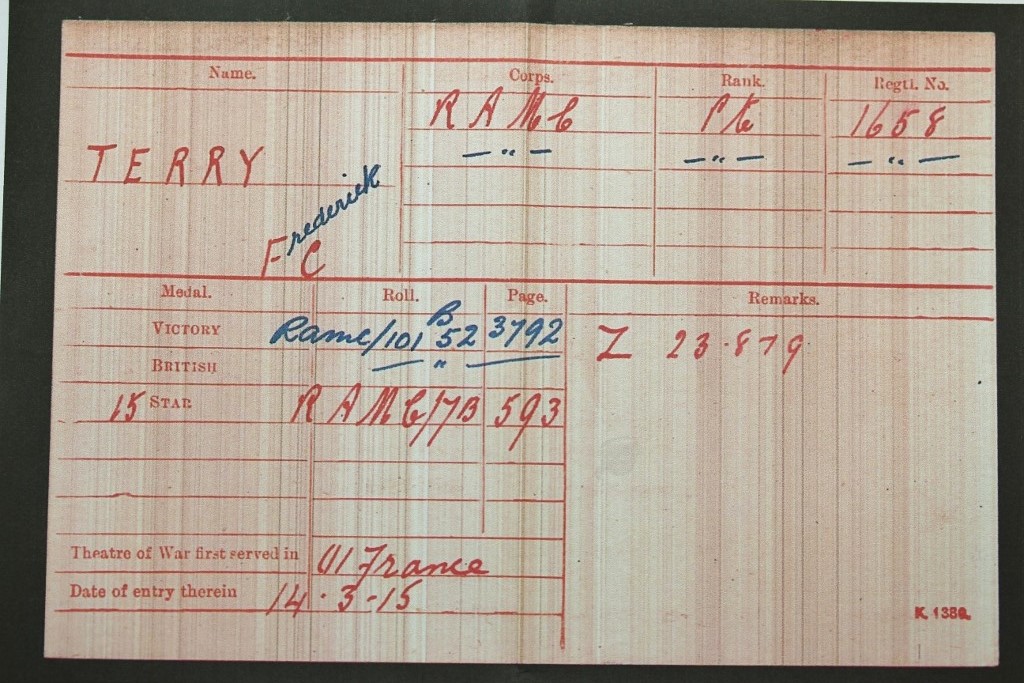 Name. Corps. Rank. Regtl. No.
R A M C Pte 1658
— " — — " — — " —
TERRY
Frederick
F C
Medal. Roll. Page. Remarks.
VICTORY Ramc/101 B 52 3792 Z 23·8·19
BRITISH — " —
15 STAR R A M C/7B 593
Theatre of War first served in (1) France
Date of entry therein 14·3-15
K. 1380.